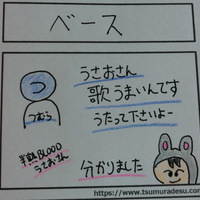 ベース
うさおさん
歌うまいんです
うたって下さいよー
つ
つむら
半熟BLOOD
うさおさん
分かりました
https://www.tsumuradesu.com/